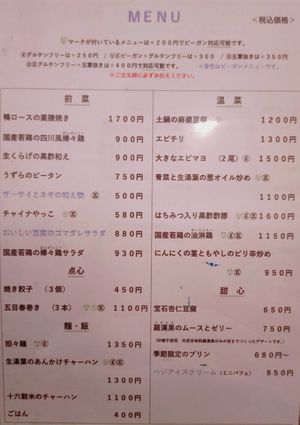 MENU
<税込価格>
マークが付いているメニューは+200円でビーガン対応可能です。
グルテンフリー+250円 / ビーガン+グルテンフリーは+300 / 五葷抜き+350円
グルテンフリー+五葷抜き+400円で対応可能です。 *紫色はビーガンメニューです。
*ご注文時に必ずお伝えください。
前菜
鴨ロースの薬膳焼き 1700円
国産若鶏の四川風棒々鶏 900円
生くらげの黒酢和え 900円
うずらのピータン 750円
ザーサイとネギの和え物 500円
チャイナやっこ 580円
おいしい豆腐のゴマダレサラダ 880円
国産若鶏の棒々鶏サラダ 930円
点心
焼き餃子 (3個) 450円
五目春巻き (3本) 1100円
麺・飯
担々麺 1350円
生湯葉のあんかけチャーハン
1300円
十六穀米のチャーハン 1100円
ごはん 400円
温菜
土鍋の麻婆豆腐 1200円
エビチリ 1300円
大きなエビマヨ (2尾) 1500円
青菜と生湯葉の葱オイル炒め
はちみつ入り黒酢酢豚 1600円
国産若鶏の油淋鶏 1150円
にんにくの茎ともやしのピリ辛炒め
950円
甜心
宝石杏仁豆腐 650円
羅漢果のムースとゼリー 750円
季節限定のプリン 680円~
ベジアイスクリーム (ミニパフェ) 850円